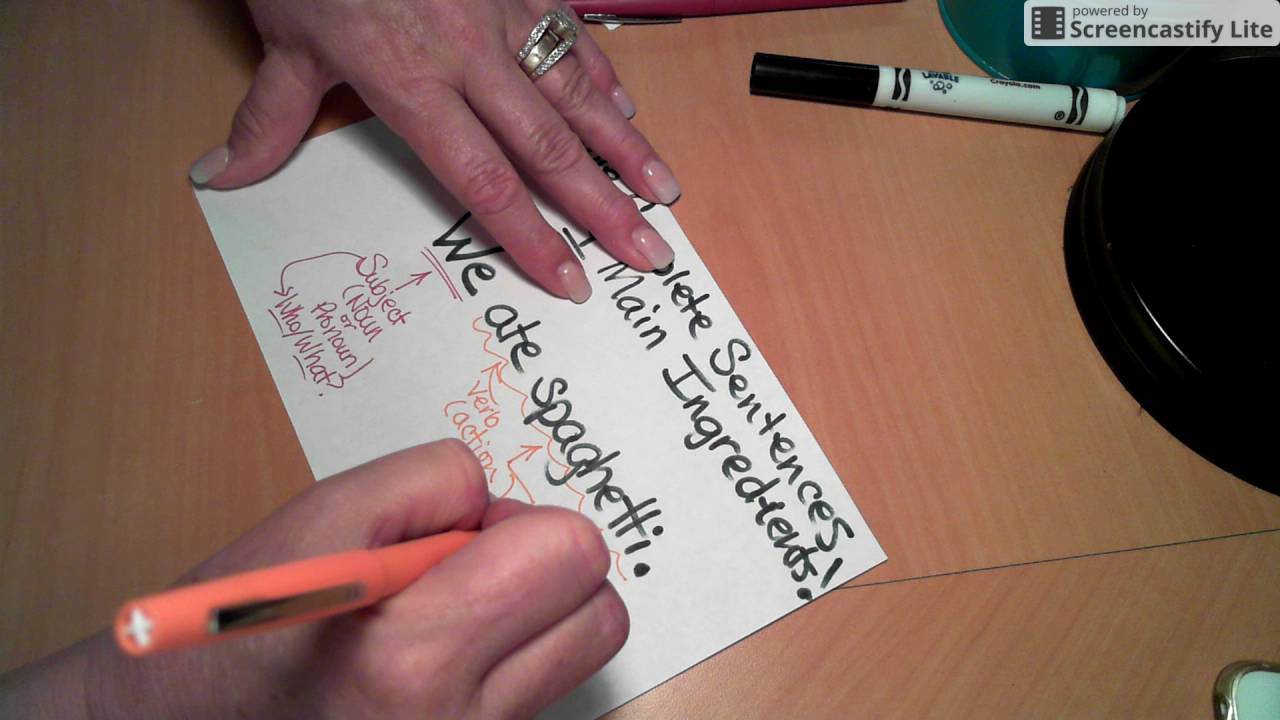 powered by
Screencastify Lite
Crayola.com
Sentences!
Main Ingredients!
We ate spaghetti.
Subject
(Noun
or
Pronoun)
Who/What?
verb
(action